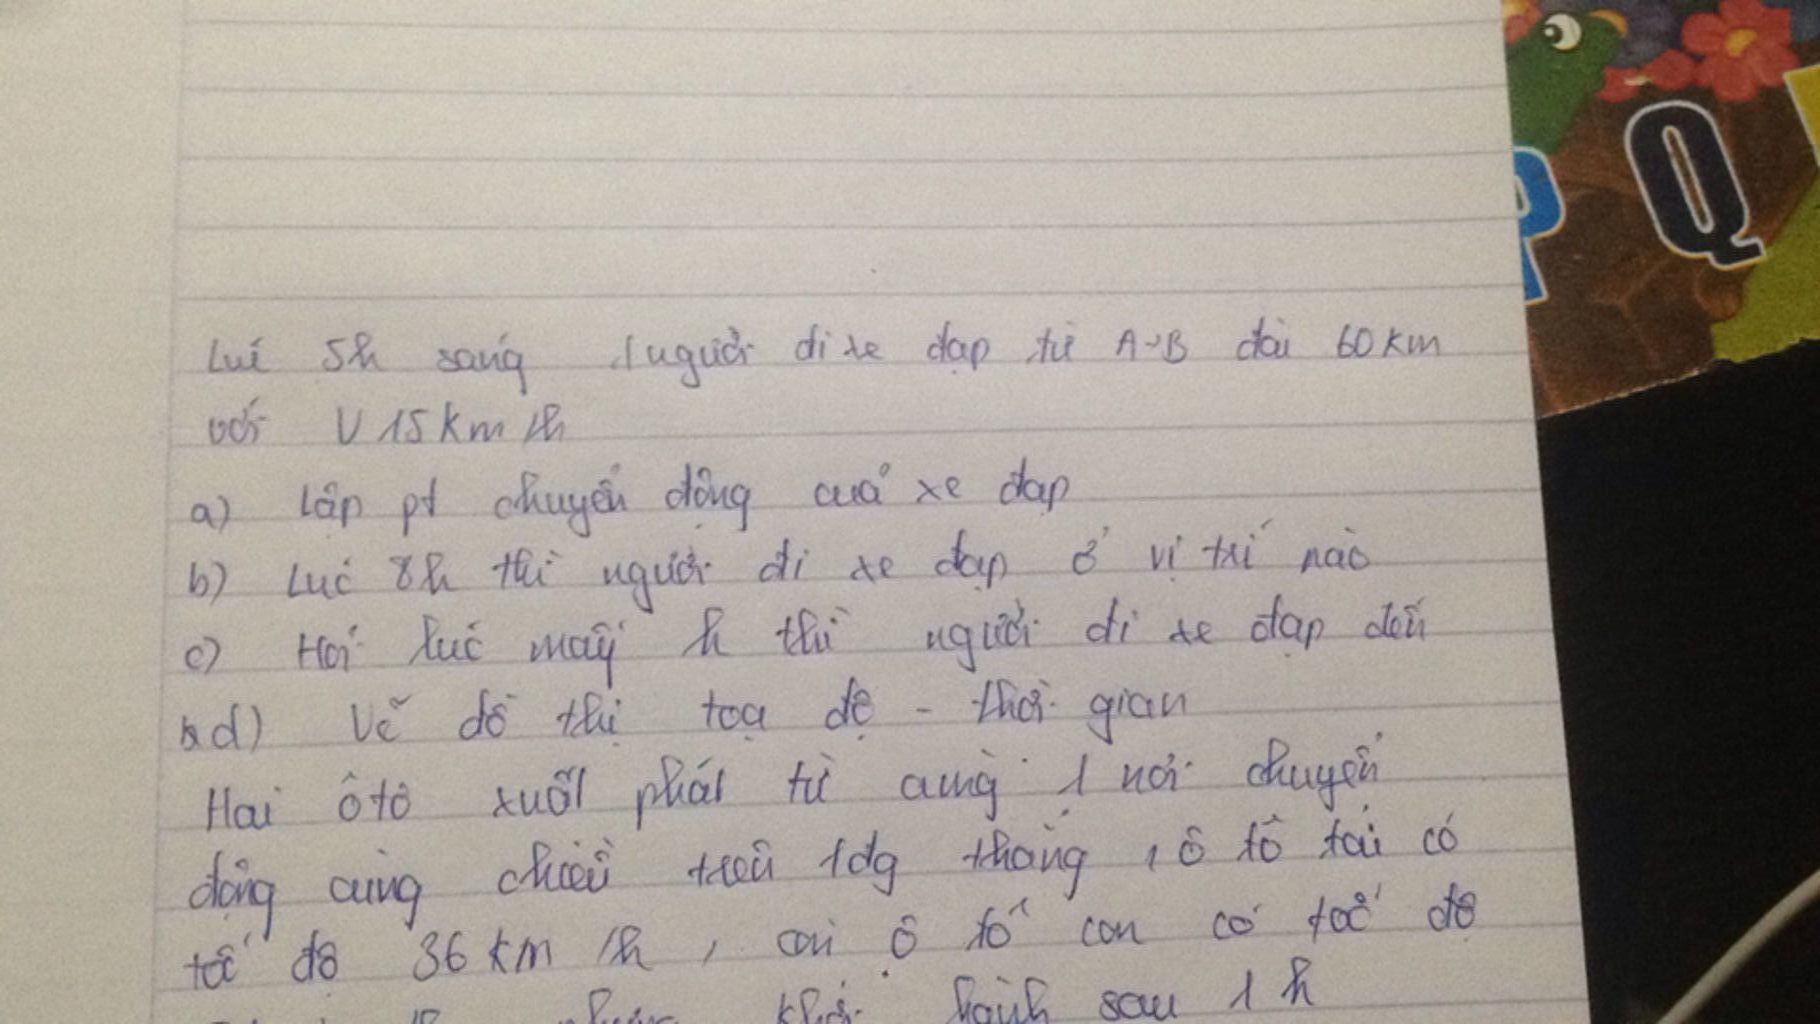 Lúc 5h sáng 1 người đi xe đạp từ A→B dài 60 km
với V 15 km/h
a) Lập pt chuyển động của xe đạp
b) Lúc 8h thì người đi xe đạp ở vị trí nào
c) Hỏi lúc mấy h thì người đi xe đạp đến
d) Vẽ đồ thị toạ độ - thời gian
Hai ôtô xuất phát từ cùng 1 nơi chuyển
động cùng chiều trên 1 đg thẳng, ô tô tải có
tốc độ 36 km/h, còn ô tô con có tốc độ
khởi hành sau 1 h
Q